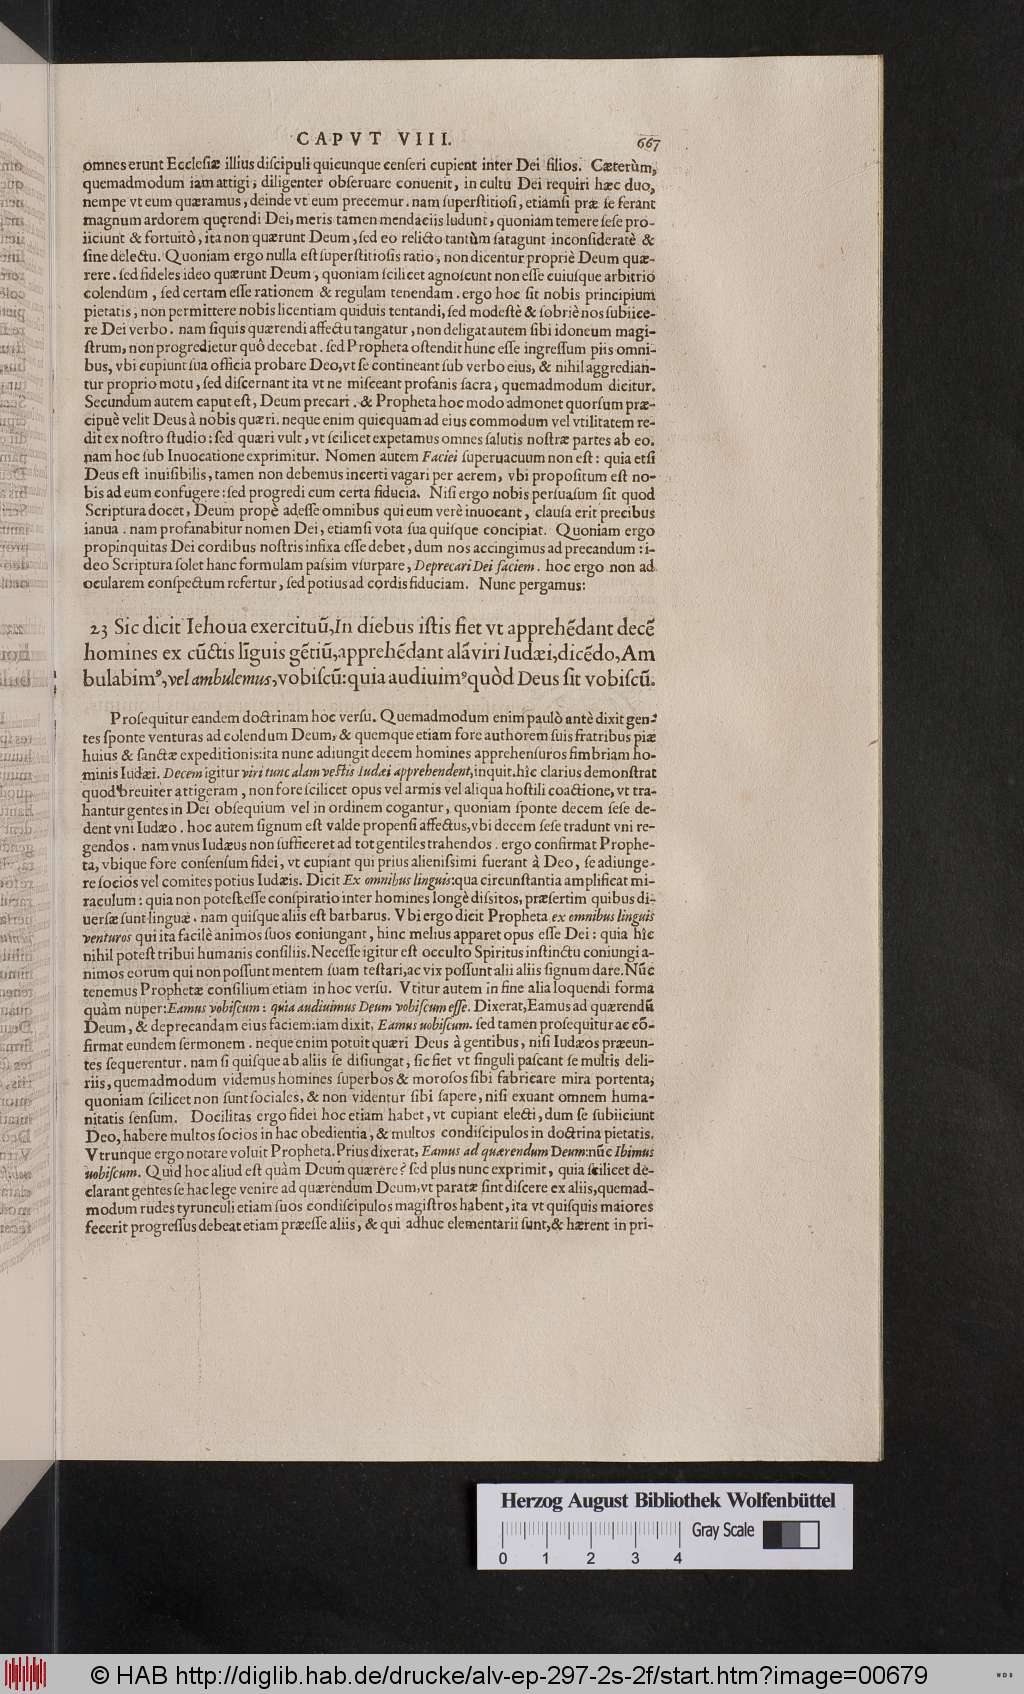 CAPVT VIII. 667
omnes erunt Ecclesiæ illius discipuli quicunque censeri cupient inter Dei filios. Cæterùm,
quemadmodum iam attigi, diligenter obseruare conuenit, in cultu Dei requiri hæc duo,
nempe vt eum quæramus, deinde vt eum precemur. nam superstitiosi, etiamsi præ se ferant
magnum ardorem quęrendi Dei, meris tamen mendaciis ludunt, quoniam temere sese pro-
iiciunt & fortuitò, ita non quærunt Deum, sed eo relicto tantùm satagunt inconsideratè &
sine delectu. Quoniam ergo nulla est superstitiosis ratio, non dicentur propriè Deum quæ-
rere. sed fideles ideo quærunt Deum, quoniam scilicet agnoscunt non esse cuiusque arbitrio
colendum, sed certam esse rationem & regulam tenendam. ergo hoc sit nobis principium
pietatis, non permittere nobis licentiam quiduis tentandi, sed modestè & sobriè nos subiice-
re Dei verbo. nam siquis quærendi affectu tangatur, non deligat autem sibi idoneum magi-
strum, non progredietur quò decebat. sed Propheta ostendit hunc esse ingressum piis omni-
bus, vbi cupiunt sua officia probare Deo, vt se contineant sub verbo eius, & nihil aggredian-
tur proprio motu, sed discernant ita vt ne misceant profanis sacra, quemadmodum dicitur.
Secundum autem caput est, Deum precari. & Propheta hoc modo admonet quorsum præ-
cipuè velit Deus à nobis quæri. neque enim quicquam ad eius commodum vel vtilitatem re-
dit ex nostro studio: sed quæri vult, vt scilicet expetamus omnes salutis nostræ partes ab eo.
nam hoc sub Inuocatione exprimitur. Nomen autem Faciei superuacuum non est: quia etsi
Deus est inuisibilis, tamen non debemus incerti vagari per aerem, vbi propositum est no-
bis ad eum confugere: sed progredi cum certa fiducia. Nisi ergo nobis persuasum sit quod
Scriptura docet, Deum propè adesse omnibus qui eum verè inuocant, clausa erit precibus
ianua. nam profanabitur nomen Dei, etiamsi vota sua quisque concipiat. Quoniam ergo
propinquitas Dei cordibus nostris infixa esse debet, dum nos accingimus ad precandum: i-
deo Scriptura solet hanc formulam passim vsurpare, Deprecari Dei faciem. hoc ergo non ad
ocularem conspectum refertur, sed potius ad cordis fiduciam. Nunc pergamus:
23 Sic dicit Iehoua exercituũ, In diebus istis fiet vt apprehẽdant decẽ
homines ex cũctis lĩguis gẽtiũ, apprehẽdant alã viri Iudæi, dicẽdo, Am
bulabimꝰ, vel ambulemus, vobiscũ: quia audiuimꝰ quòd Deus sit vobiscũ.
Prosequitur eandem doctrinam hoc versu. Quemadmodum enim paulò antè dixit gen-
tes sponte venturas ad colendum Deum, & quemque etiam fore authorem suis fratribus piæ
huius & sanctæ expeditionis: ita nunc adiungit decem homines apprehensuros fimbriam ho-
minis Iudæi. Decem igitur viri tunc alam vestis Iudæi apprehendent, inquit. hîc clarius demonstrat
quod breuiter attigeram, non fore scilicet opus vel armis vel aliqua hostili coactione, vt tra-
hantur gentes in Dei obsequium vel in ordinem cogantur, quoniam sponte decem sese de-
dent vni Iudæo. hoc autem signum est valde propensi affectus, vbi decem sese tradunt vni re-
gendos. nam vnus Iudæus non sufficeret ad tot gentiles trahendos. ergo confirmat Prophe-
ta, vbique fore consensum fidei, vt cupiant qui prius alienissimi fuerant à Deo, se adiunge-
re socios vel comites potius Iudæis. Dicit Ex omnibus linguis: qua circunstantia amplificat mi-
raculum: quia non potest esse conspiratio inter homines longè dissitos, præsertim quibus di-
uersæ sunt linguæ. nam quisque aliis est barbarus. Vbi ergo dicit Propheta ex omnibus linguis
venturos qui ita facilè animos suos coniungant, hinc melius apparet opus esse Dei: quia hîc
nihil potest tribui humanis consiliis. Necesse igitur est occulto Spiritus instinctu coniungi a-
nimos eorum qui non possunt mentem suam testari, ac vix possunt alii aliis signum dare. Nũc
tenemus Prophetæ consilium etiam in hoc versu. Vtitur autem in fine alia loquendi forma
quàm nuper: Eamus vobiscum: quia audiuimus Deum vobiscum esse. Dixerat, Eamus ad quærendũ
Deum, & deprecandam eius faciem: iam dixit, Eamus uobiscum. sed tamen prosequitur ac cõ-
firmat eundem sermonem. neque enim potuit quæri Deus à gentibus, nisi Iudæos præeun-
tes sequerentur. nam si quisque ab aliis se disiungat, sic fiet vt singuli pascant se multis deli-
riis, quemadmodum videmus homines superbos & morosos sibi fabricare mira portenta;
quoniam scilicet non sunt sociales, & non videntur sibi sapere, nisi exuant omnem huma-
nitatis sensum. Docilitas ergo fidei hoc etiam habet, vt cupiant electi, dum se subiiciunt
Deo, habere multos socios in hac obedientia, & multos condiscipulos in doctrina pietatis.
Vtrunque ergo notare voluit Propheta. Prius dixerat, Eamus ad quærendum Deum: nũc Ibimus
uobiscum. Quid hoc aliud est quàm Deum quærere? sed plus nunc exprimit, quia scilicet de-
clarant gentes se hac lege venire ad quærendum Deum, vt paratæ sint discere ex aliis, quemad-
modum rudes tyrunculi etiam suos condiscipulos magistros habent, ita vt quisquis maiores
fecerit progressus debeat etiam præesse aliis, & qui adhuc elementarii sunt, & hærent in pri-
Herzog August Bibliothek Wolfenbüttel
Gray Scale
0 1 2 3 4
© HAB http://diglib.hab.de/drucke/alv-ep-297-2s-2f/start.htm?image=00679